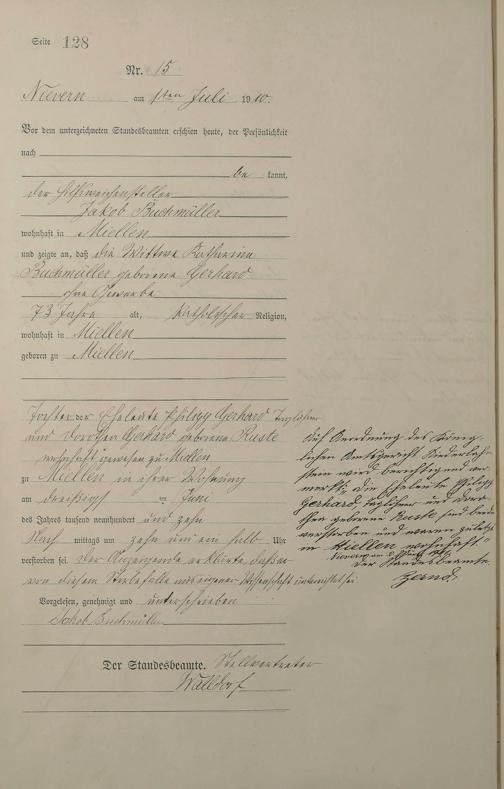 Seite 128
Nr. 15
Nievern am 1ten Juli 1910.
Vor dem unterzeichneten Standesbeamten erschien heute, der Persönlichkeit
nach
be kannt,
der Hilfsweichensteller
Jakob Buchmüller
wohnhaft in Miellen
und zeigte an, daß die Wittwe Katharina
Buchmüller geborene Gerhard
ohne Gewerbe
73 Jahre alt, katholischer Religion,
wohnhaft in Miellen
geboren zu Miellen
Tochter der Eheleute Philipp Gerhard Taglöhner
und Dorothea Gerhard geborene Ruste
wohnhaft gewesen zu Miellen
zu Miellen in ihrer Wohnung
am dreißigst en Juni
des Jahres tausend neunhundert und zehn
Nach mittags um zehn und ein halb Uhr
verstorben sei. Der Anzeigende erklärte, daß er
von diesem Sterbefalle aus eigener Wissenschaft unterrichtet sei.
Vorgelesen, genehmigt und unterschrieben
Jakob Buchmüller
Der Standesbeamte. Stellvertreter
Walldorf
Auf Anordnung des König-
lichen Amtsgericht Niederlahn-
stein wird berichtigend ver-
merkt: Die Eheleute Philipp
Gerhard, Taglöhner und Doro-
thea geborene Ruste sind beide
verstorben und waren zuletzt
in Miellen wohnhaft"
Nievern am
Der Standesbeamte